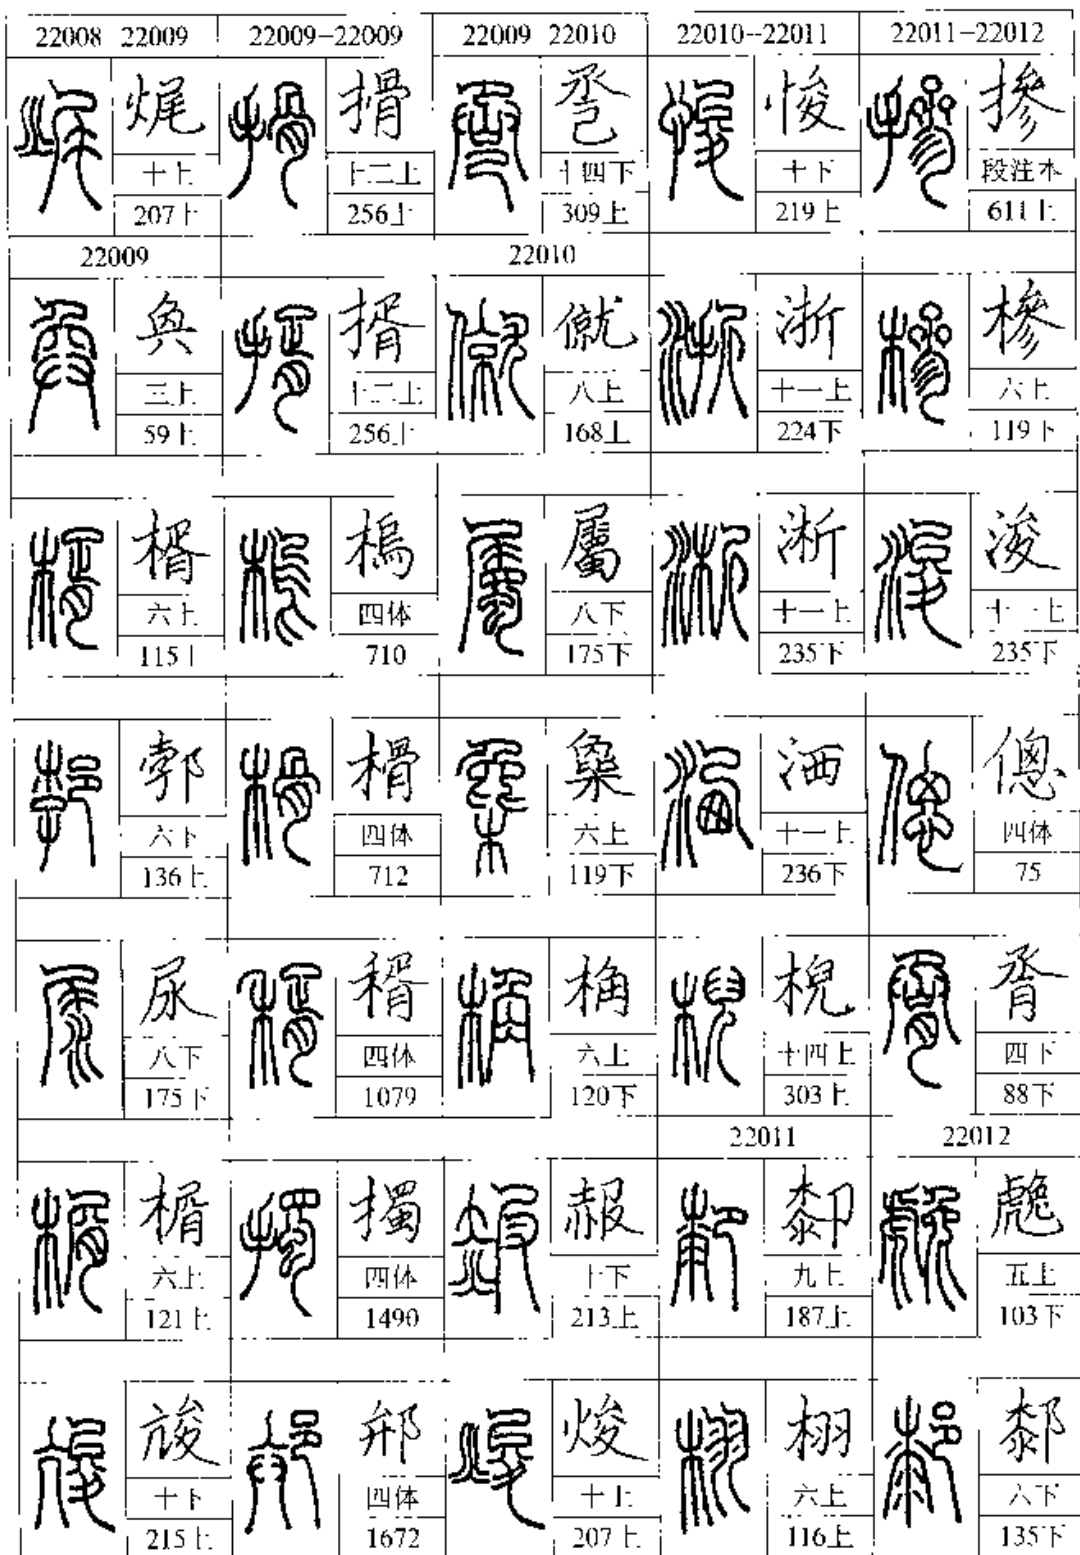 22008 22009
22009-22009
22009 22010
22010--22011
22011-22012
十上
207上
搰
十二上
256上
卺
十四下
309上
悛
十下
219上
摻
段注本
611上
22009
22010
三上
59上
揟
十二上
256上
僦
八上
168上
浙
十一上
224下
槮
六上
119下
楈
六上
115上
樢
四体
710
屬
八下
175下
淅
十一上
235下
浚
十一上
235下
郣
六下
136上
榾
四体
712
六上
119下
洒
十一上
236下
傯
四体
75
尿
八下
175下
稰
四体
1079
桷
六上
120下
十四上
303上
四下
88下
22011
22012
楯
六上
121上
擉
四体
1490
赧
十下
213上
九上
187上
五上
103下
竣
十下
215上
四体
1672
焌
十上
207上
栩
六上
116上
六下
135下